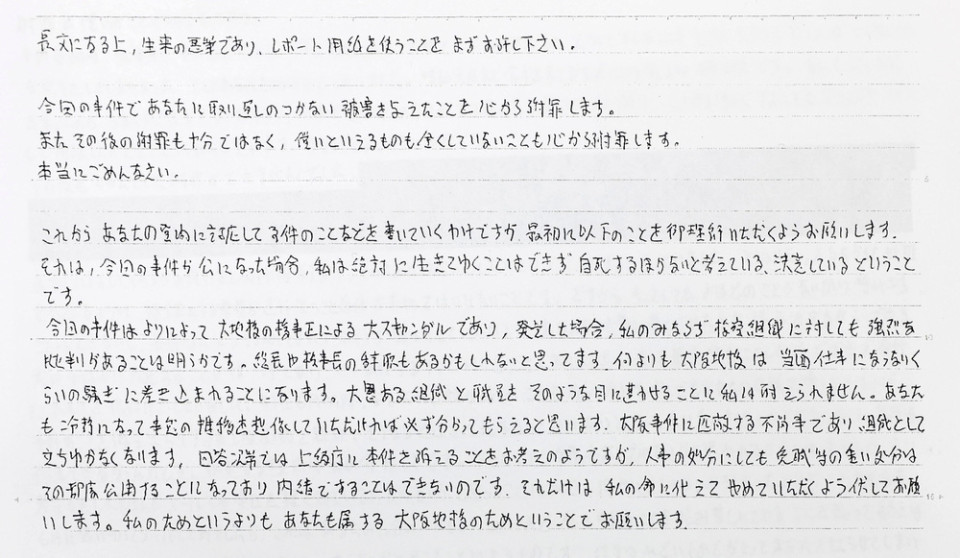 長文になる上，生来の悪筆であり，レポート用紙を使うことをまずお許し下さい。
今回の事件であなたに取り返しのつかない被害を与えたことを心から謝罪します。
またその後の謝罪も十分ではなく，償いといえるものも全くしていないことも心から謝罪します。
本当にごめんなさい。
これからあなたの意向に対応して事件のことなどを書いていくわけですが，最初に以下のことを御理解いただくようお願いします．
それは，今回の事件が公になった場合，私は絶対に生きてゆくことはできず自死するほかないと考えている，決意しているということ
です。
今回の事件はよりによって大地検の検事正による大スキャンダルであり，発覚した場合，私のみならず検察組織に対しても強烈な
批判があることは明らかです。総長や検事長の辞職もあるかもしれないと思ってます．何よりも大阪地検は当面仕事にならないく
らいの騒ぎに巻き込まれることになります。大恩ある組織と職員をそのような目に遭わせることに私は耐えられません。あなた
も冷静になって事态の推移を想像していただければ必ず分かってもらえると思います．大阪事件に匹敵する不祥事であり，組織として
立ちゆかなくなります．回答次第では上級庁に本件を訴えることをお考えのようですが，人事の処分にしても免職等の重い処分は
その都度公開することになっており内緒ですることはできないのです．それだけは私の命に代えてやめていただくよう伏してお願
いします。私のためというよりもあなたも属する大阪地検のためということでお願いします．